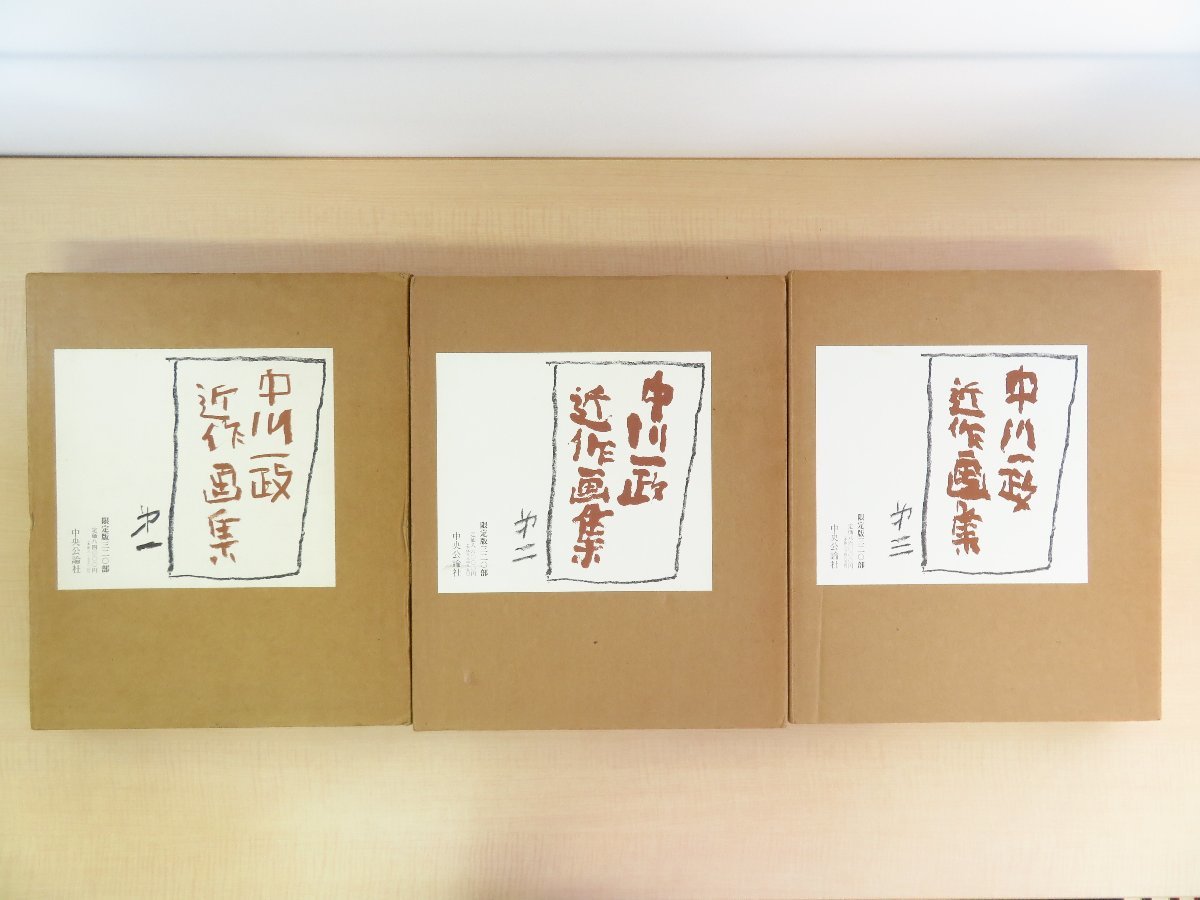 中川一政
近作画集
第一
限定版三二〇部
中央公論社
中川一政
近作画集
第二
限定版三二〇部
中央公論社
中川一政
近作画集
第三
限定版三二〇部
中央公論社